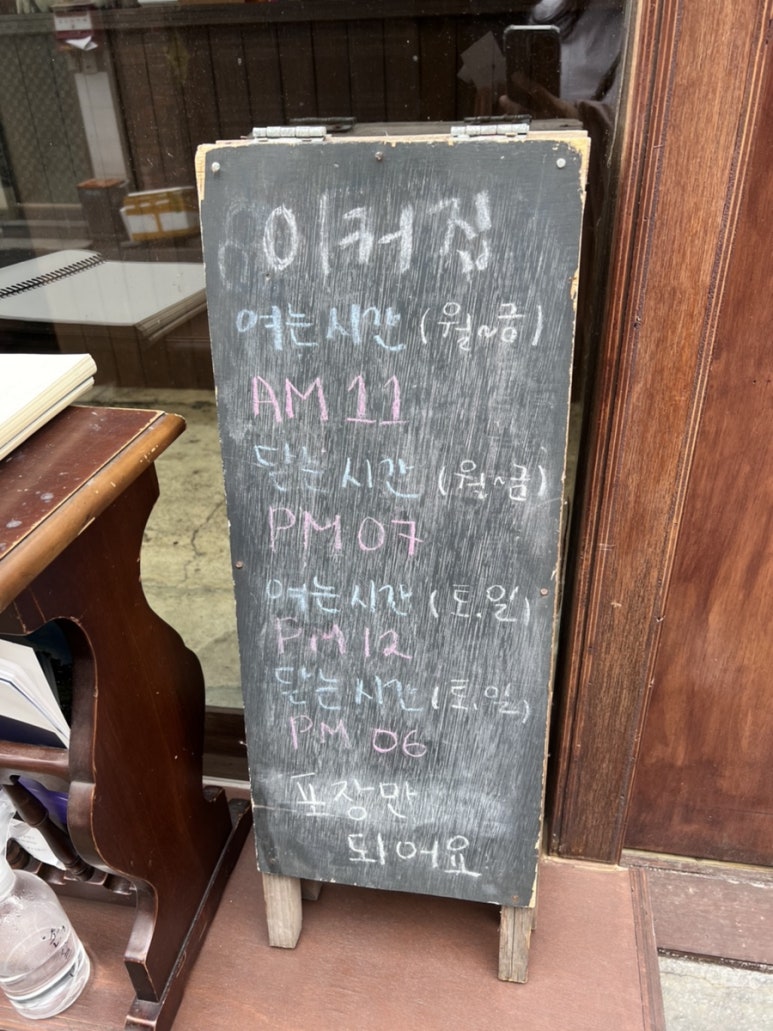 이커집
여는시간 (월~금)
AM 11
닫는시간 (월~금)
PM 07
여는시간 (토.일)
PM 12
닫는시간 (토.일)
PM 06
포장만
되어요